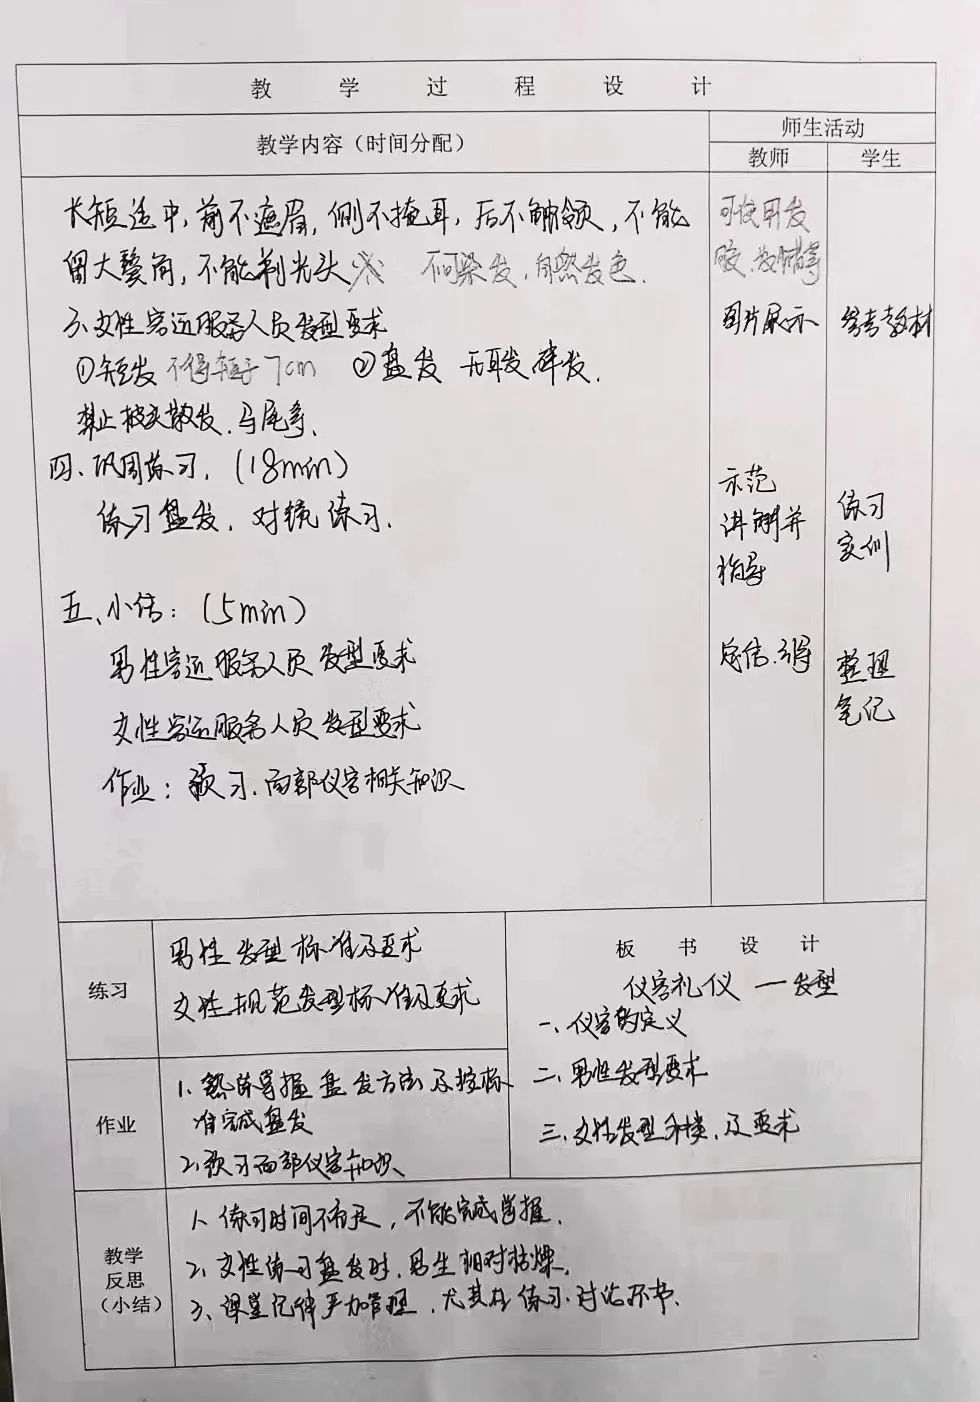 教学过程设计
教学内容（时间分配）
师生活动
教师 学生
长短适中，前不遮眉，侧不掩耳，后不触领，不能
留大鬓角，不能剃光头 不可染发，自然发色.
可试用发
胶、发蜡等
3、女性客运服务人员发型要求
图片展示 参考教材
①短发 不得短于7cm ②盘发 无耳发碎发.
禁止披头散发、马尾等.
四、巩固练习. (18min)
练习盘发. 对镜练习.
示范
讲解并
指导
练习
实训
五、小结: (5min)
男性客运服务人员发型要求
女性客运服务人员发型要求
作业: 预习.面部仪容相关知识
总结.引导
整理
笔记
练习
男性发型标准及要求
女性规范发型标准及要求
作业
1.熟练掌握盘发方法及按标
准完成盘发
2.预习面部仪容知识
板书设计
仪容礼仪 一发型
一、仪容的定义
二、男性发型要求
三、女性发型种类、及要求
教学
反思
（小结）
1、练习时间不充足，不能完成掌握.
2、女性练习盘发时.男生相对枯燥.
3、课堂纪律严加管理，尤其在练习.讨论环节.